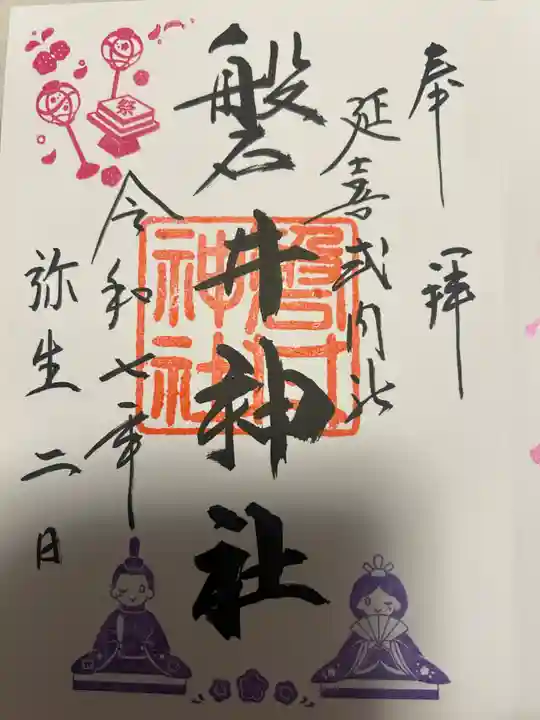 奉拝
延喜式内社
磐井神社
令和七年
弥生二日
磐井神社
祭